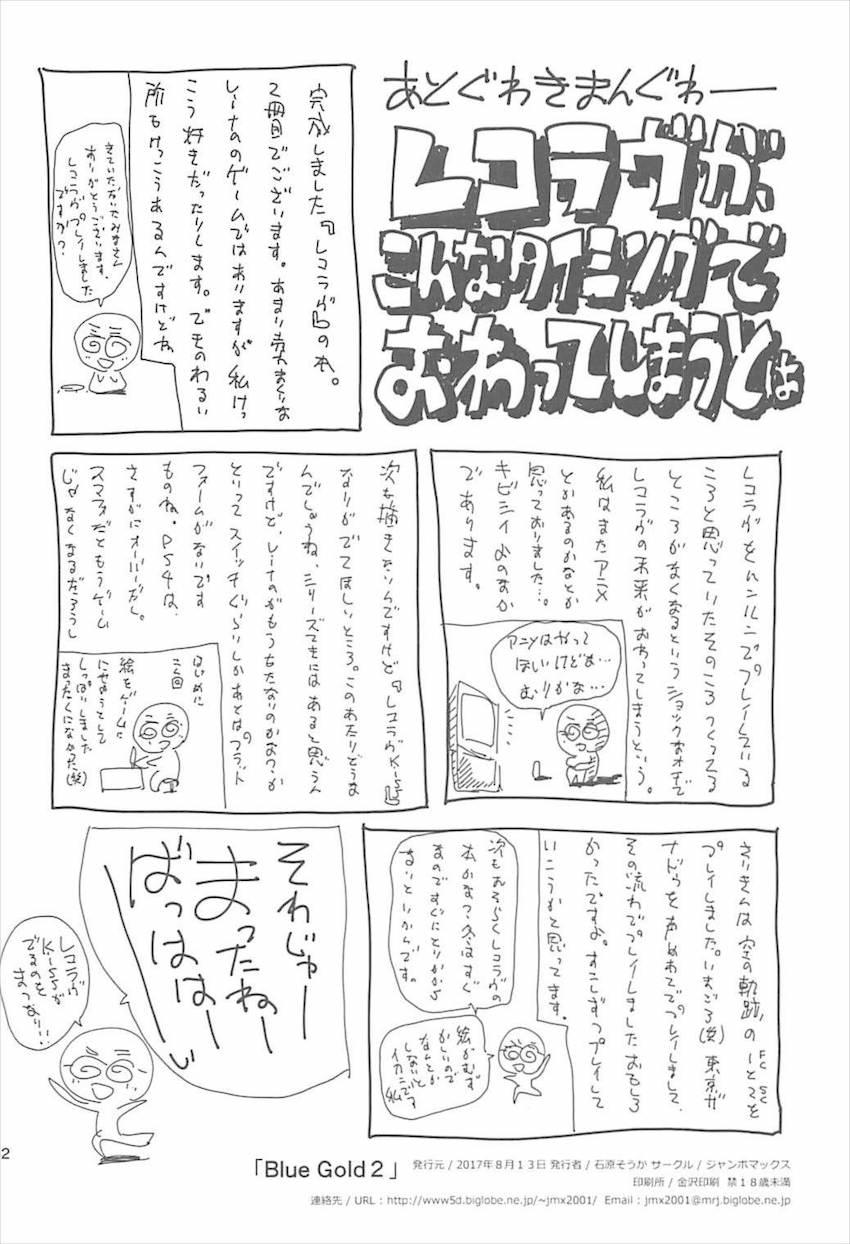 あとぐわきまんぐわー
レコラヴが、
こんなタイミングで
おわってしまうとは
完成しました『レコラヴB』の本。
2冊目でございます。あまり売れまくりな
レーナのゲームではありますが私けっ
こう好きだったりします。でものわるい
所もけっこうあるんですけどね
きていただいたみなさん
ありがとうございます。
レコラヴプレイしました
ですか?
レコラヴをハンルンでプレイしている
ころと思っていたそのころ つくってる
ところがなくなるというショックなカオで
レコラヴの未来がおわってしまうという。
私はまたアニメ
とかあるのかなとか
思っておりました…。
キビシイよのなか
であります。
アニメはやって
ほしいけどな…
むりかな…
次も描きたいんですけど『レコラヴKiSS』
なりがでてほしいところ。このあたりどうな
んでしょうね、シリーズてきにはあると思うん
ですけど、レーナのがもうちたないのかなつか
といってスイッチぐらいしかあとはプラット
フォームがないです
ものね。PS4は、
さすがにオーバーだし。
スマフォだともうゲーム
じゃなくなるだろうし
はじめに
こん回
絵をゲームに
にせようとして
しっぱいしました
まったくになかった(笑)
さいきんは空の軌跡の1と2を
FC SC
プレイしました。いまごろ(笑) 東京ザ
ナドゥを声めあてでプレイしまして、
その流れでプレイしましたおもしろ
かったですよ。すこしずつプレイして
いこうかと思ってます。
次もおそらくレコラヴの
本かな?冬はすぐ
なのですぐにとりかから
ないといかんです。
絵がむず
かしいので
なんとか
しないと
イカンでス
私
そわじゃー
まったねー
ばっはは～い
レコラヴ
KISSが
でるのを
まつなり!!
2
「Blue Gold 2」
発行元 / 2017年8月13日 発行者 / 石原そうか サークル / ジャンボマックス
印刷所 / 金沢印刷 禁18歳未満
連絡先 / URL : http://www5d.biglobe.ne.jp/~jmx2001/ Email : jmx2001@mrj.biglobe.ne.jp